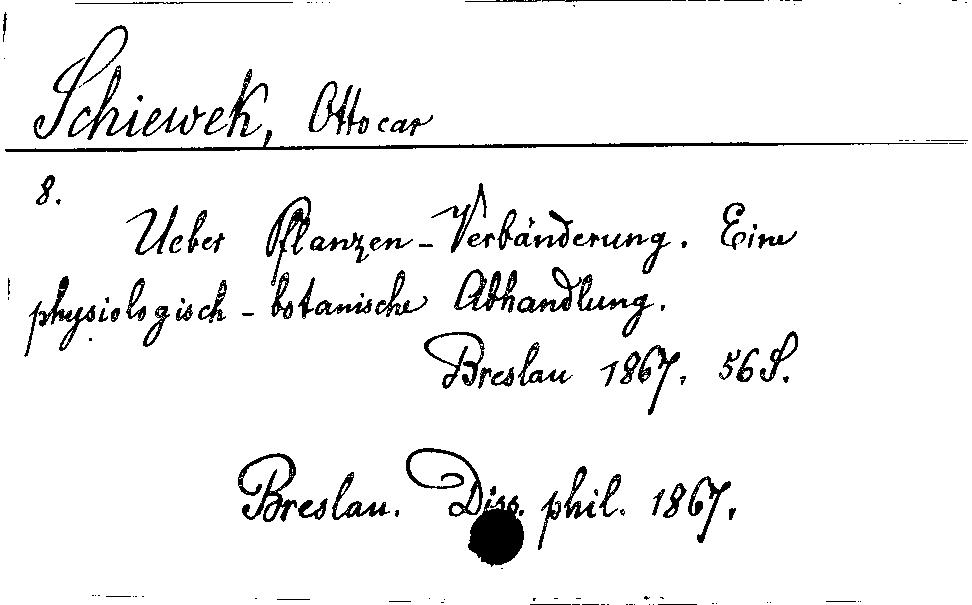 Schiewek, Ottocar
8.
Ueber Pflanzen-Verbänderung. Eine
physiologisch-botanische Abhandlung.
Breslau 1867. 56 S.
Breslau. Diss. phil. 1867.